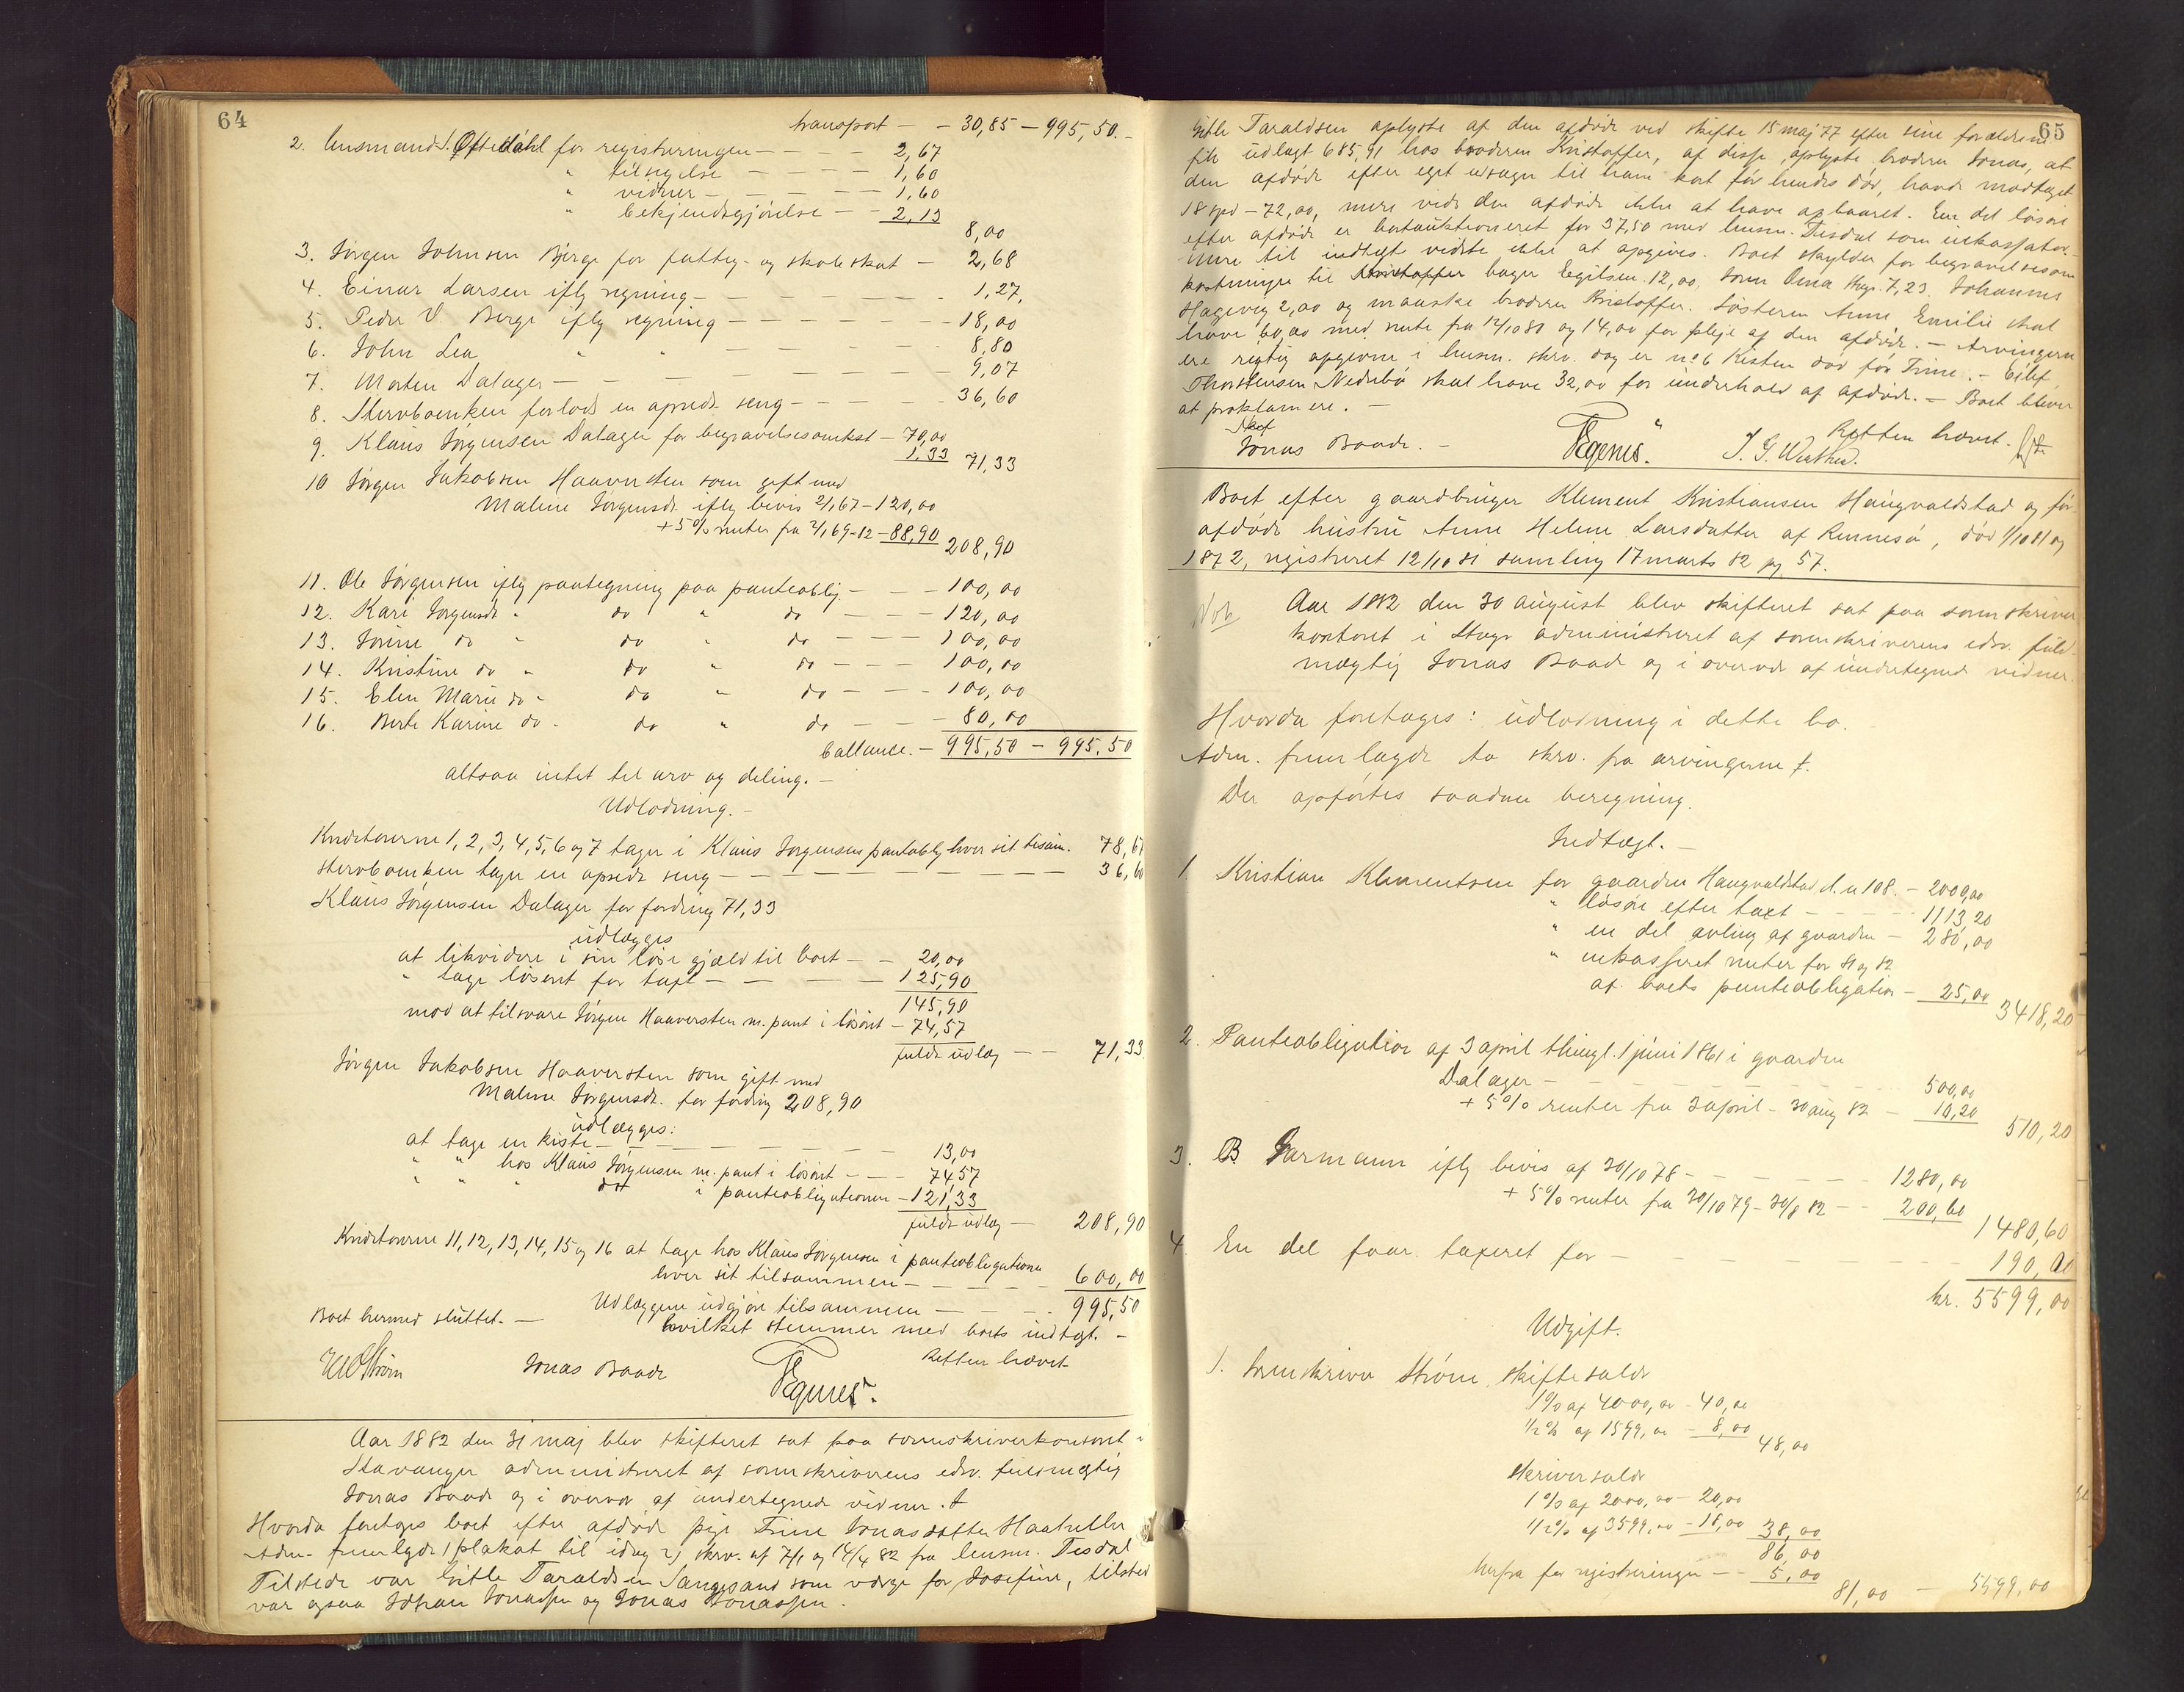 64
transport — - 30,85 — 995,50. -
2. Lensmand S. Øftedahl for registreringen - - - - 2,67
" tilsigelse - - - - 1,60
" vidner - - - - 1,60
" bekjendtgjørelse - - 2,13
8,00
3. Jørgen Johnsen Bjerge for fattig- og skoleskat - 2,68
4. Einar Larsen iflg regning - - - - 1,27
5. Peder V. Berge iflg regning - - - - 18,00
6. John Lea " " - - - - 8,80
7. Morten Dalager - - - - 9,07
8. Stervboenken forlods en opredt seng - - - - 36,60
9. Klaus Jørgensen Dalager for begravelsesomkst - 70,00
1,33 71,33
10 Jørgen Jakobsen Haaversten som gift med
Malene Jørgensdt. iflg bevis 2/1 67 - 120,00
+ 5% renter fra 2/1 69-82 - 88,90 208,90
11. Ole Jørgensen iflg paategning paa panteoblig - - - 100,00
12. Kari Jørgensdt " do " do - - - 120,00
13. Jorine do " do " do - - - 100,00
14. Kristine do " do " do - - - 100,00
15. Elen Marie do " do " do - - - 100,00
16. Berte Karine do " do " do - - - 80,00
ballance. - 995,50 - 995,50
altsaa intet til arv og deling. -
Udlodning. -
Kreditorerne 1, 2, 3, 4, 5, 6 og 7 tager i Klaus Jørgensens panteoblig hver sit tilsam. 78,67
Stervboenken tager en opredt seng - - - - 36,60
Klaus Jørgensen Dalager for fordring 71,33
udlægges
at likvidere i sin løse gjæld til boet - - 20,00
" tage løsøret for taxt - - - - 125,90
145,90
mod at tilsvare Jørgen Haaversten m. pant i løsøret - 74,57
fuldt udlæg - - 71,33
Jørgen Jakobsen Haaversten som gift med
Malene Jørgensdt. for fordring 208,90
udlægges:
at tage en kiste - - - - 13,00
" " hos Klaus Jørgensen m. pant i løsøret - - 74,57
" " " do i panteobligationen - 121,33
fuldt udlæg - 208,90
Kreditorerne 11, 12, 13, 14, 15 og 16 at tage hos Klaus Jørgensen i panteobligationen
hver sit tilsammen - - - - 600,00
Udlæggene udgjøre tilsammen - - - - 995,50
hvilket stemmer med boets indtægt. -
Boet hermed sluttet. -
Retten hævet
Jonas Baade
TEgenes.
Aar 1882 den 31 maj blev skifteret sat paa sorenskriverkontoret i
Stavanger administreret af sorenskriverens edsv. fuldmægtig
Jonas Baade og i overvær af undertegnede vidner. †
Hvorda foretoges boet efter afdøde pige Trine Jonasdatter
Adm. fremlagde 1) plakat til idag 2) skrv. af 7/1 og 14/4 82 fra lensm. Tisdal
Tilstede var Gitle Taraldsen Sangesand som værge for Josefine, tilsted
var ogsaa Johan Jonassen og Jonas Jonassen.
65
Gitle Taraldsen oplyste at den afdøde ved skifte 15 maj 77 efter sine forældre
fik udlagt 685,91 hos broderen Kristoffer, af disse oplyste broderen Jonas, at
den afdøde efter eget udsagn til ham kort før hendes død, havde modtaget
18 spd - 72,00, mere vides den afdøde ikke at have opbaaret. En del løsøre
efter afdøde er bortauktioneret for 37,50 med lensm. Tisdal som inkassator. -
Mere til indtægt vidste ikke at opgives. Boet skylder for begravelsesom
kostninger til Kristoffer bager Egilsen 12,00, Johannes
Hagevig 2,00 og maaske broderen Kristoffer. Søsteren Anne Emilie skal
have 60,00 med rente fra 12/10 81 og 14,00 for pleje af den afdøde. - Arvingerne
ere rigtig opgivne i lensm. skrv. dog er no 6 Kisten død før Trine. - Eilef
Thorstensen Nedrebø skal have 32,00 for underhold af afdøde. - Boet bliver
at proklamere. -
Retten hævet.
Jonas Baade. -
TEgenes.
Boet efter gaardbruger Klement Kristiansen Haugvaldstad og før
afdøde hustru Anne Helene Larsdatter af Rennesø, død 1/10 81 og
1872, registreret 12/10 81 samling 17 marts 82 pg 57.
Aar 1882 den 30 august blev skifteret sat paa sorenskriver
kontoret i Stavgr administreret af sorenskriverens edsv. fuld-
mægtig Jonas Baade og i overvær af undertegnede vidner.
Hvorda foretoges: udlodning i dette bo.
Adm. fremlagde to skrv. fra arvingerne †.
Der opførtes saadan beregning.
Indtægt. -
1 Kristian Klementsen for gaarden Haugvaldstad l. n 108. - 2000,00
" løsøre efter taxt - - - 1113,20
" en del avling af gaarden - 280,00
" inkasseret renter for 81 og 82
af boets panteobligation - 25,00 3418,20
2. Panteobligation af 3 april thingl. 1 juni 1861 i gaarden
Dalager - - - - 500,00
+ 5% renter fra 3 april - 30 aug 82 - 10,20
510,20
3. B Garmann iflg bevis af 30/10 78 - - - - 1280,00
+ 5% renter fra 30/10 79 - 30/8 82 - - 200,60
1480,60
4. En del faar. taxeret for - - - - 190,00
kr. 5599,00
Udgift.
1. Sorenskriver Strøm, skiftesalær
1% af 4000,00 - 40,00
1/2% af 1599,00 - 8,00 48,00
skriversalær
1% af 2000,00 - 20,00
1/2% af 3599,00 - 18,00 38,00
86,00
herfra for registreringen - - 5,00
81,00 - 5599,00